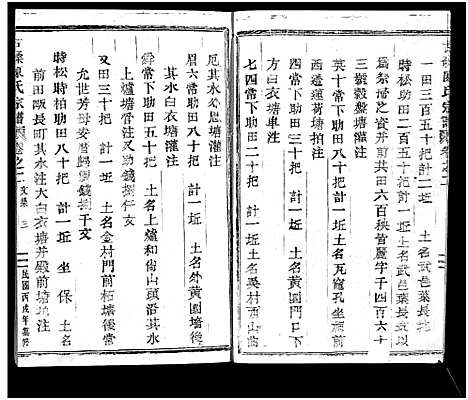 一田三百五十把 計二坵 土名武邑葉長
常下助田二百五十把 計一坵 土名武邑葉長坑以
為祭掃之資并前共田六百秧皆麗字于一千六十
三號穀盤塘灌注
英十常下助田五十把 計一坵 土名瓦窰孔坐廟前
西邊蓮荷塘灌注
七四常下助田二十把 計一坵 土名吳村西山曲
方車白衣塘灌注
厄其水外恩塘灌注
眉六常助田八十把 計一坵 土名外黃園墻後
其水白衣塘灌注
爵常下助田五十把 土名上爐和尚山頭沿其水
上爐塘管注又助錢捌仟文
又田三十把 計一坵 土名金村門前柘塘後常
允世芳母安厝歸錢捌千文
時松時柏助田八十把 計一坵 坐保 土名
前田畈長町其水注大白衣塘并殿前塘填注
宗譜 卷之二 文集 三
民國丙戌年